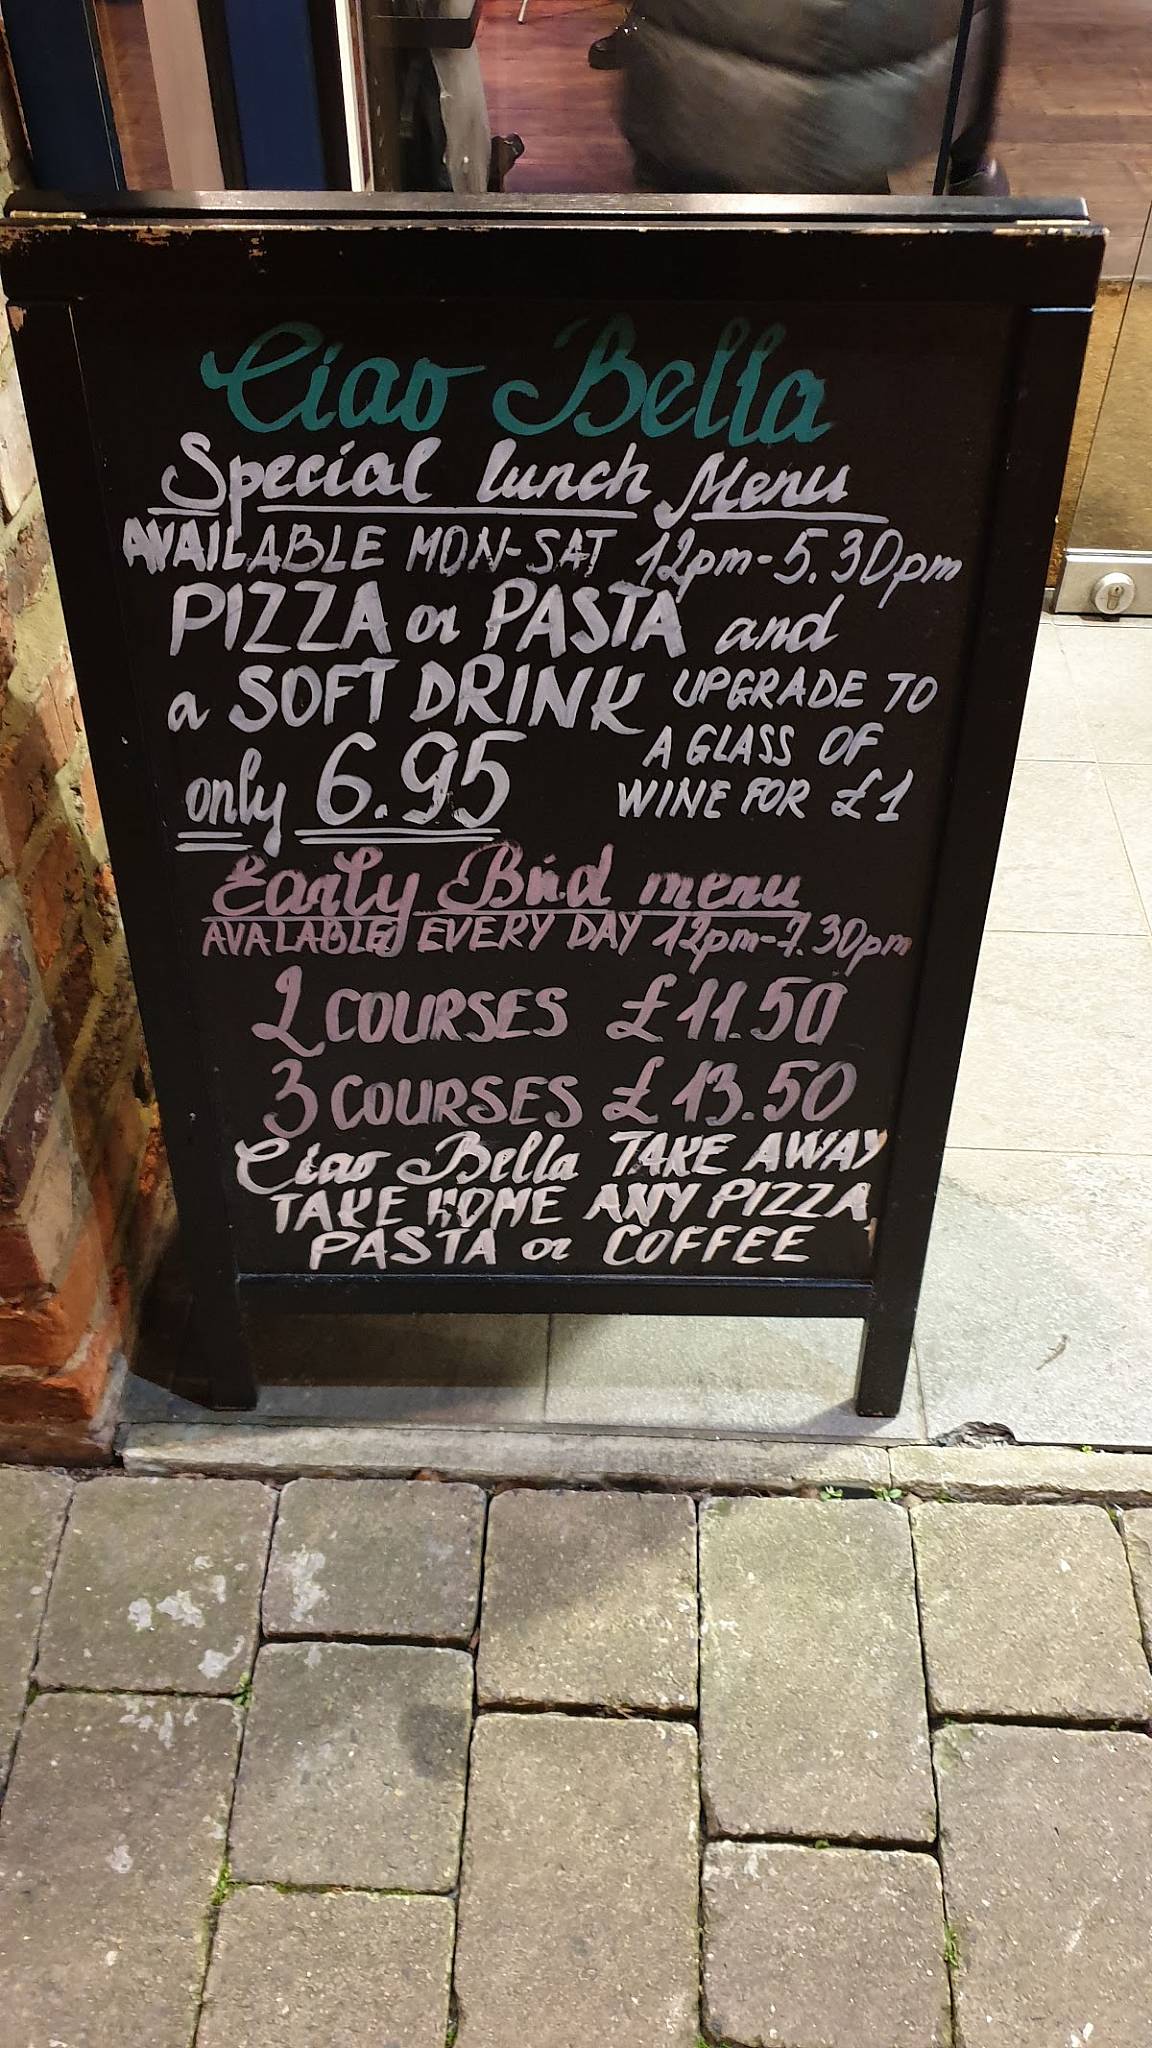 Ciao Bella
Special lunch Menu
AVAILABLE MON-SAT 12pm-5.30pm
PIZZA or PASTA and
a SOFT DRINK
only 6.95
UPGRADE TO
A GLASS OF
WINE FOR £1
Early Bird menu
AVALABLE EVERY DAY 12pm-7.30pm
2 COURSES £11.50
3 COURSES £13.50
Ciao Bella TAKE AWAY
TAKE HOME ANY PIZZA
PASTA or COFFEE